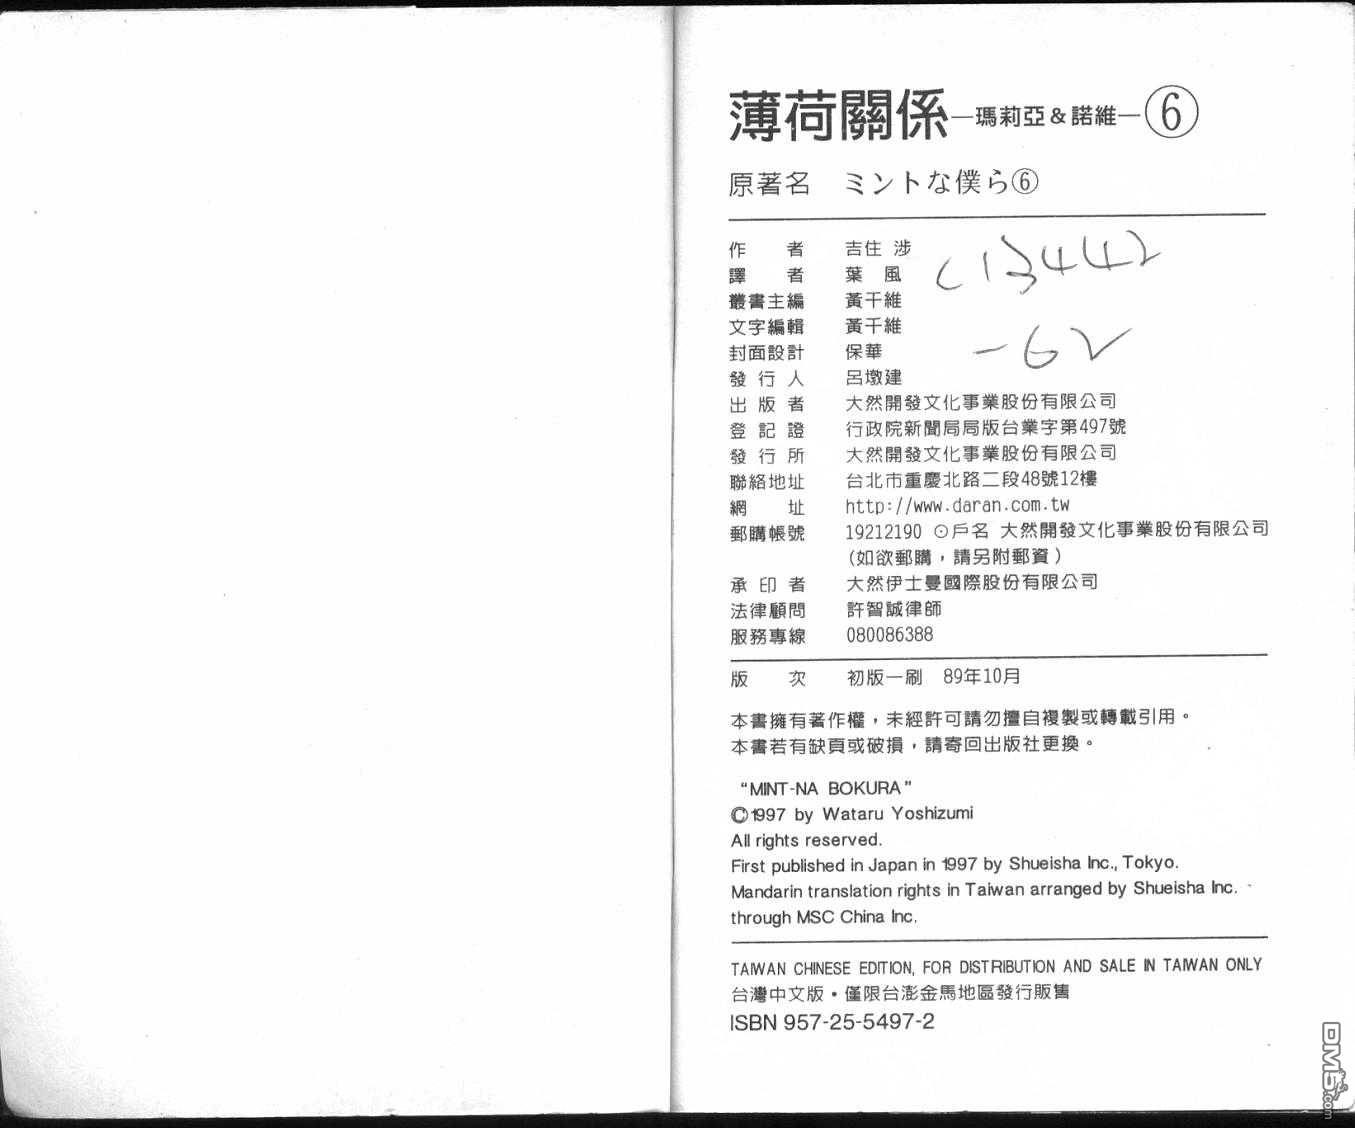 薄荷關係—瑪莉亞＆諾維—⑥
原著名　ミントな僕ら⑥
作者　吉住 涉
譯者　葉 風
叢書主編　黃千維
文字編輯　黃千維
封面設計　保華
發行人　呂墩建
出版者　大然開發文化事業股份有限公司
登記證　行政院新聞局局版台業字第497號
發行所　大然開發文化事業股份有限公司
聯絡地址　台北市重慶北路二段48號12樓
網址　http://www.daran.com.tw
郵購帳號　19212190 ⊙戶名 大然開發文化事業股份有限公司
(如欲郵購，請另附郵資)
承印者　大然伊士曼國際股份有限公司
法律顧問　許智誠律師
服務專線　080086388
版次　初版一刷　89年10月
本書擁有著作權，未經許可請勿擅自複製或轉載引用。
本書若有缺頁或破損，請寄回出版社更換。
“MINT-NA BOKURA”
©1997 by Wataru Yoshizumi
All rights reserved.
First published in Japan in 1997 by Shueisha Inc., Tokyo.
Mandarin translation rights in Taiwan arranged by Shueisha Inc.
through MSC China Inc.
TAIWAN CHINESE EDITION, FOR DISTRIBUTION AND SALE IN TAIWAN ONLY
台灣中文版・僅限台澎金馬地區發行販售
ISBN 957-25-5497-2
DM5.com